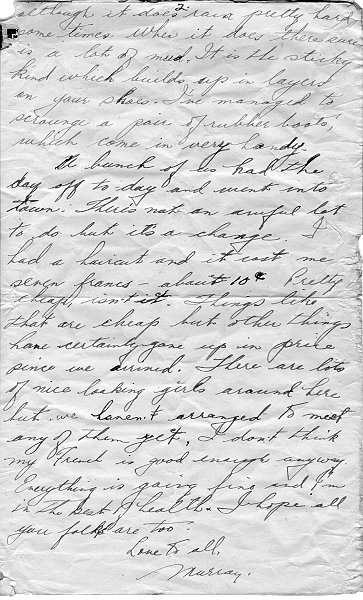 2
although it does rain pretty hard
some times. When it does there sure
is a lot of mud. It is the sticky
kind which builds up in layers
on your shoes. I've managed to
scrounge a pair of rubber boots,
which come in very handy.
A bunch of us had the
day off to day and went into
town. There's not an awful lot
to do but it's a change. I
had a haircut and it cost me
seven francs - about 10¢. Pretty
cheap, isn't it. Things like
that are cheap but other things
have certainly gone up in price
since we arrived. There are lots
of nice looking girls around here
but we haven't arranged to meet
any of them yet, I don't think
my French is good enough anyway.
Everything is going fine and I'm
in the best of health. I hope all
you folks are too.
Love to all,
Murray.